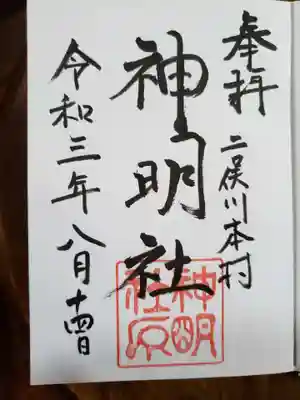 奉拝
二俣川本村
神明社
神明
社印
令和三年八月十四日